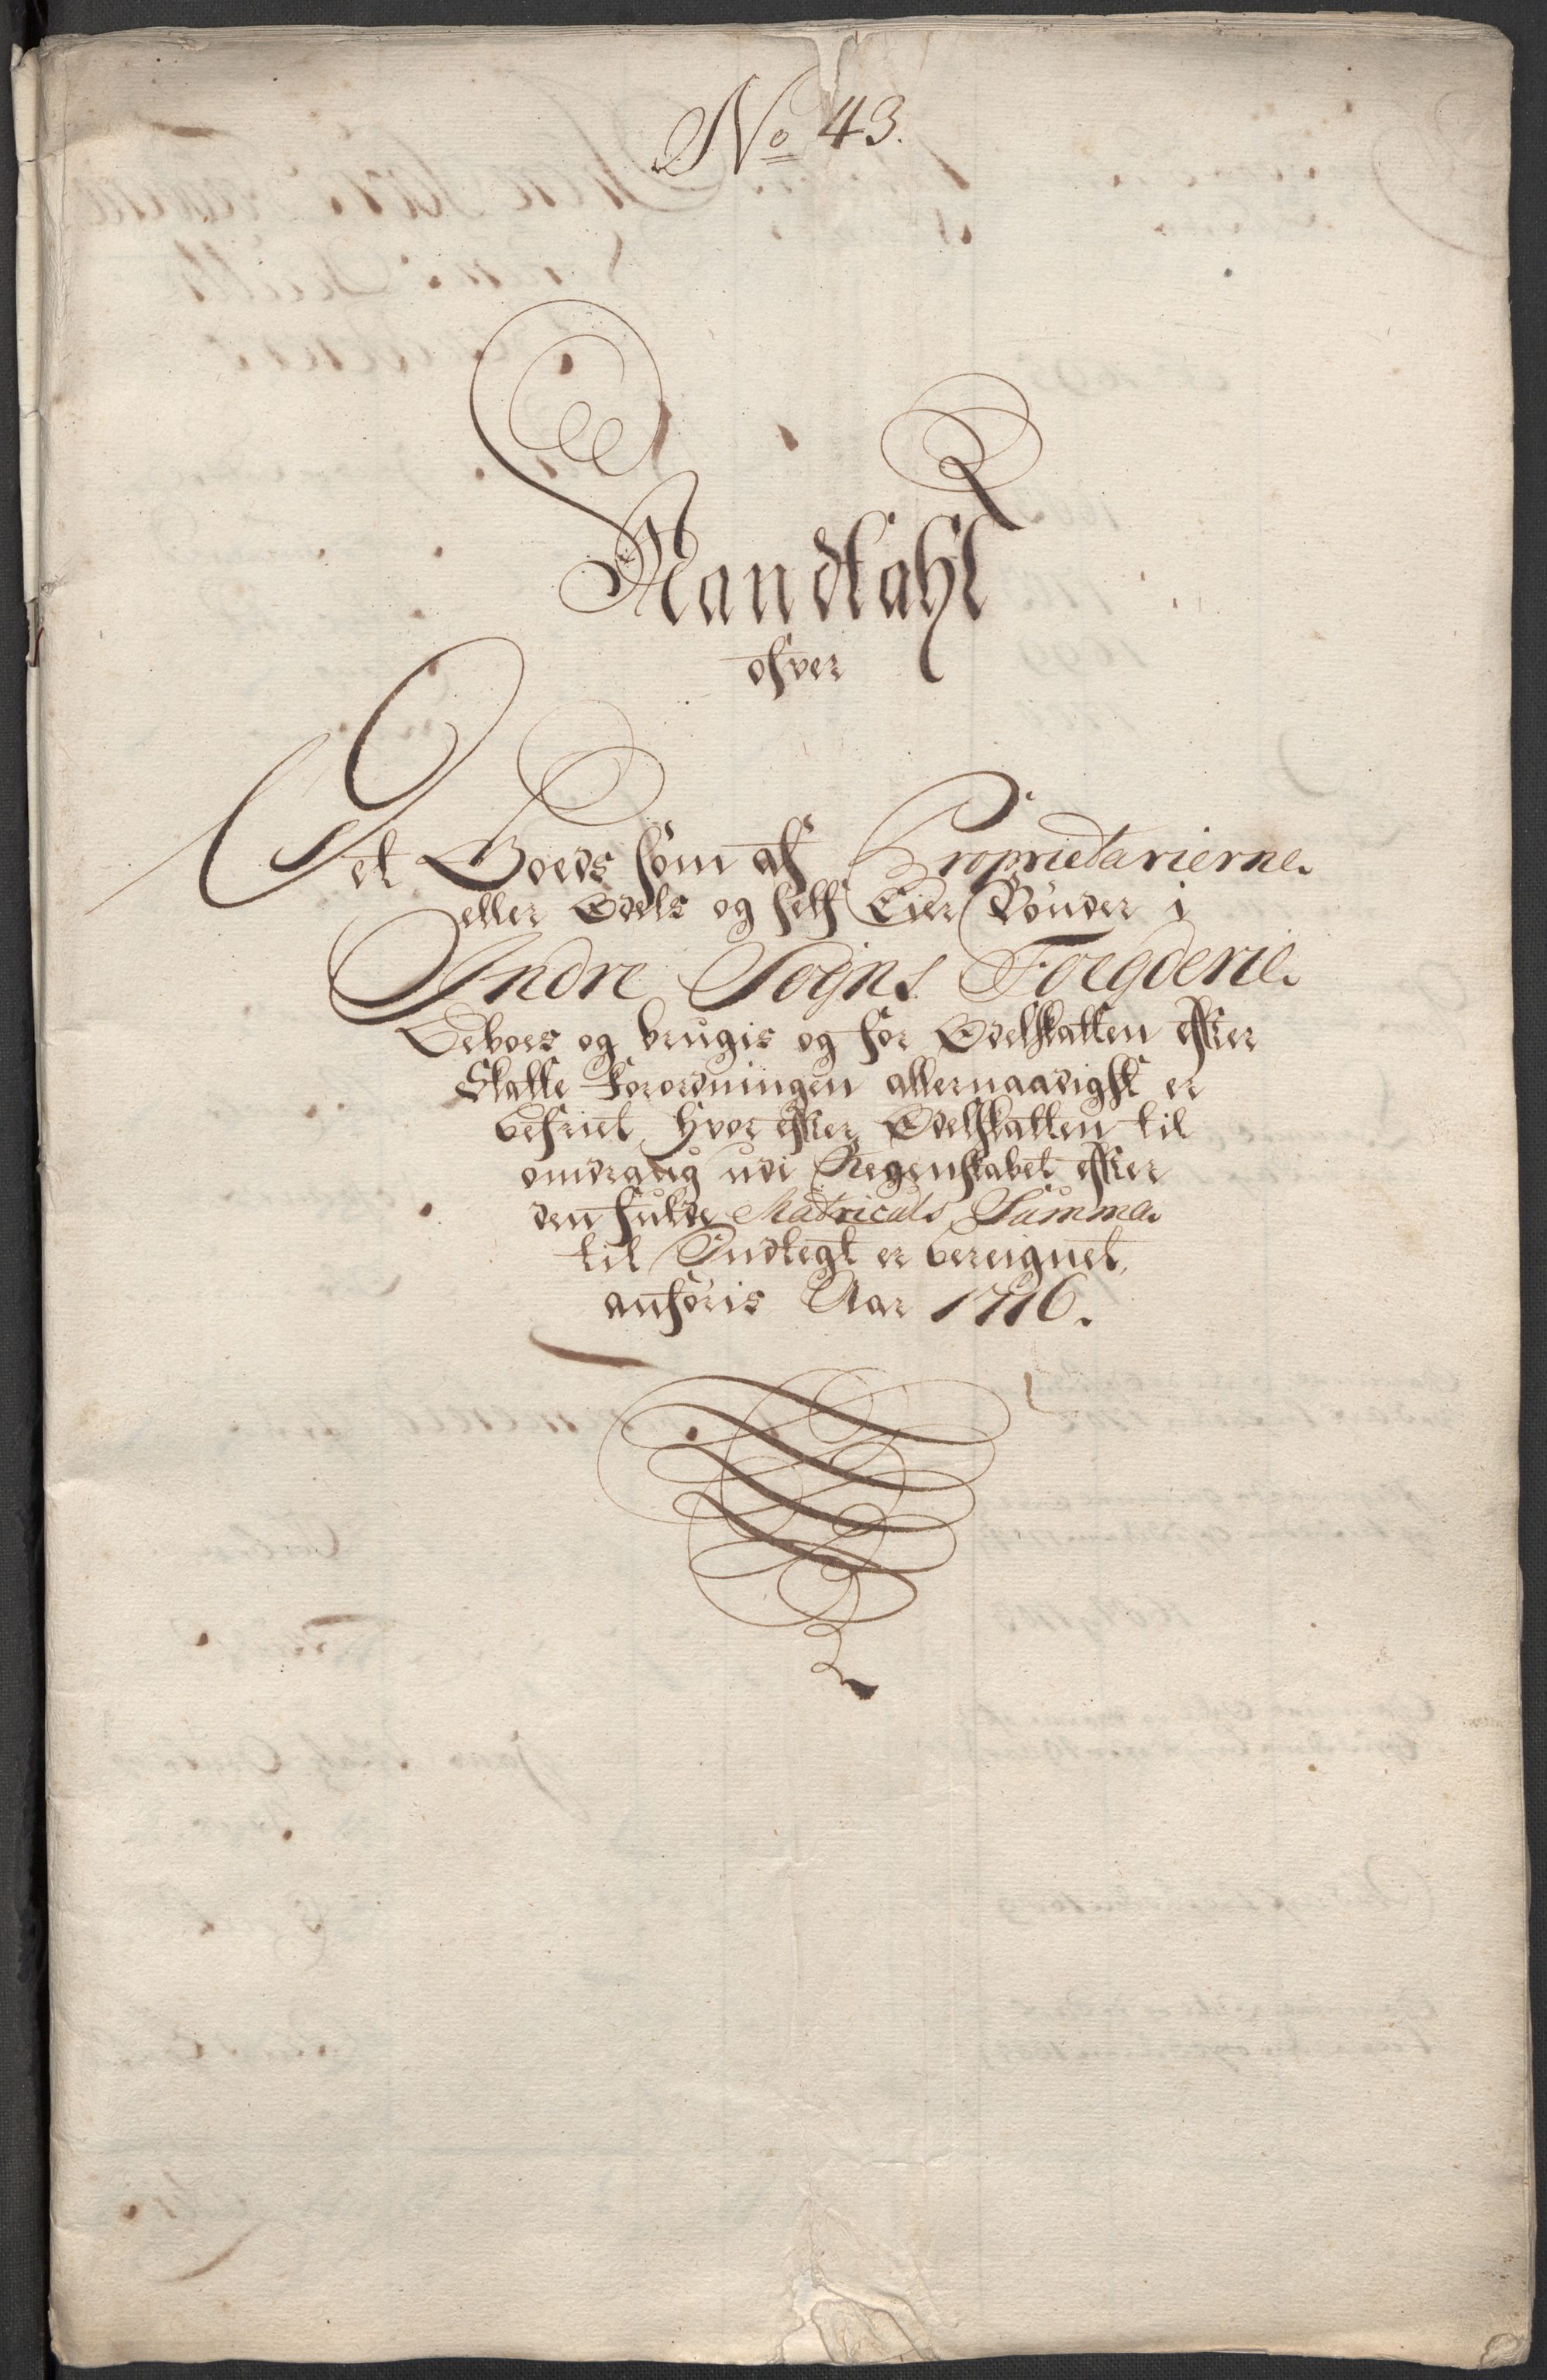 No 43.
Mandtahl
ofver
Det Goeds som af Proprietarierne
eller Odels og self Eier Bönder i
Indre Sogns Foegderie
Beboes og brugis og for Odelskatten efter
Skatte Forordningen allernaadigst er
befriet, hvor efter Odelskatten til
omdrag udi Regenskabet efter
den fulde Matriculs Summa
til Indtegt er bereignet,
anföris Aar 1716.